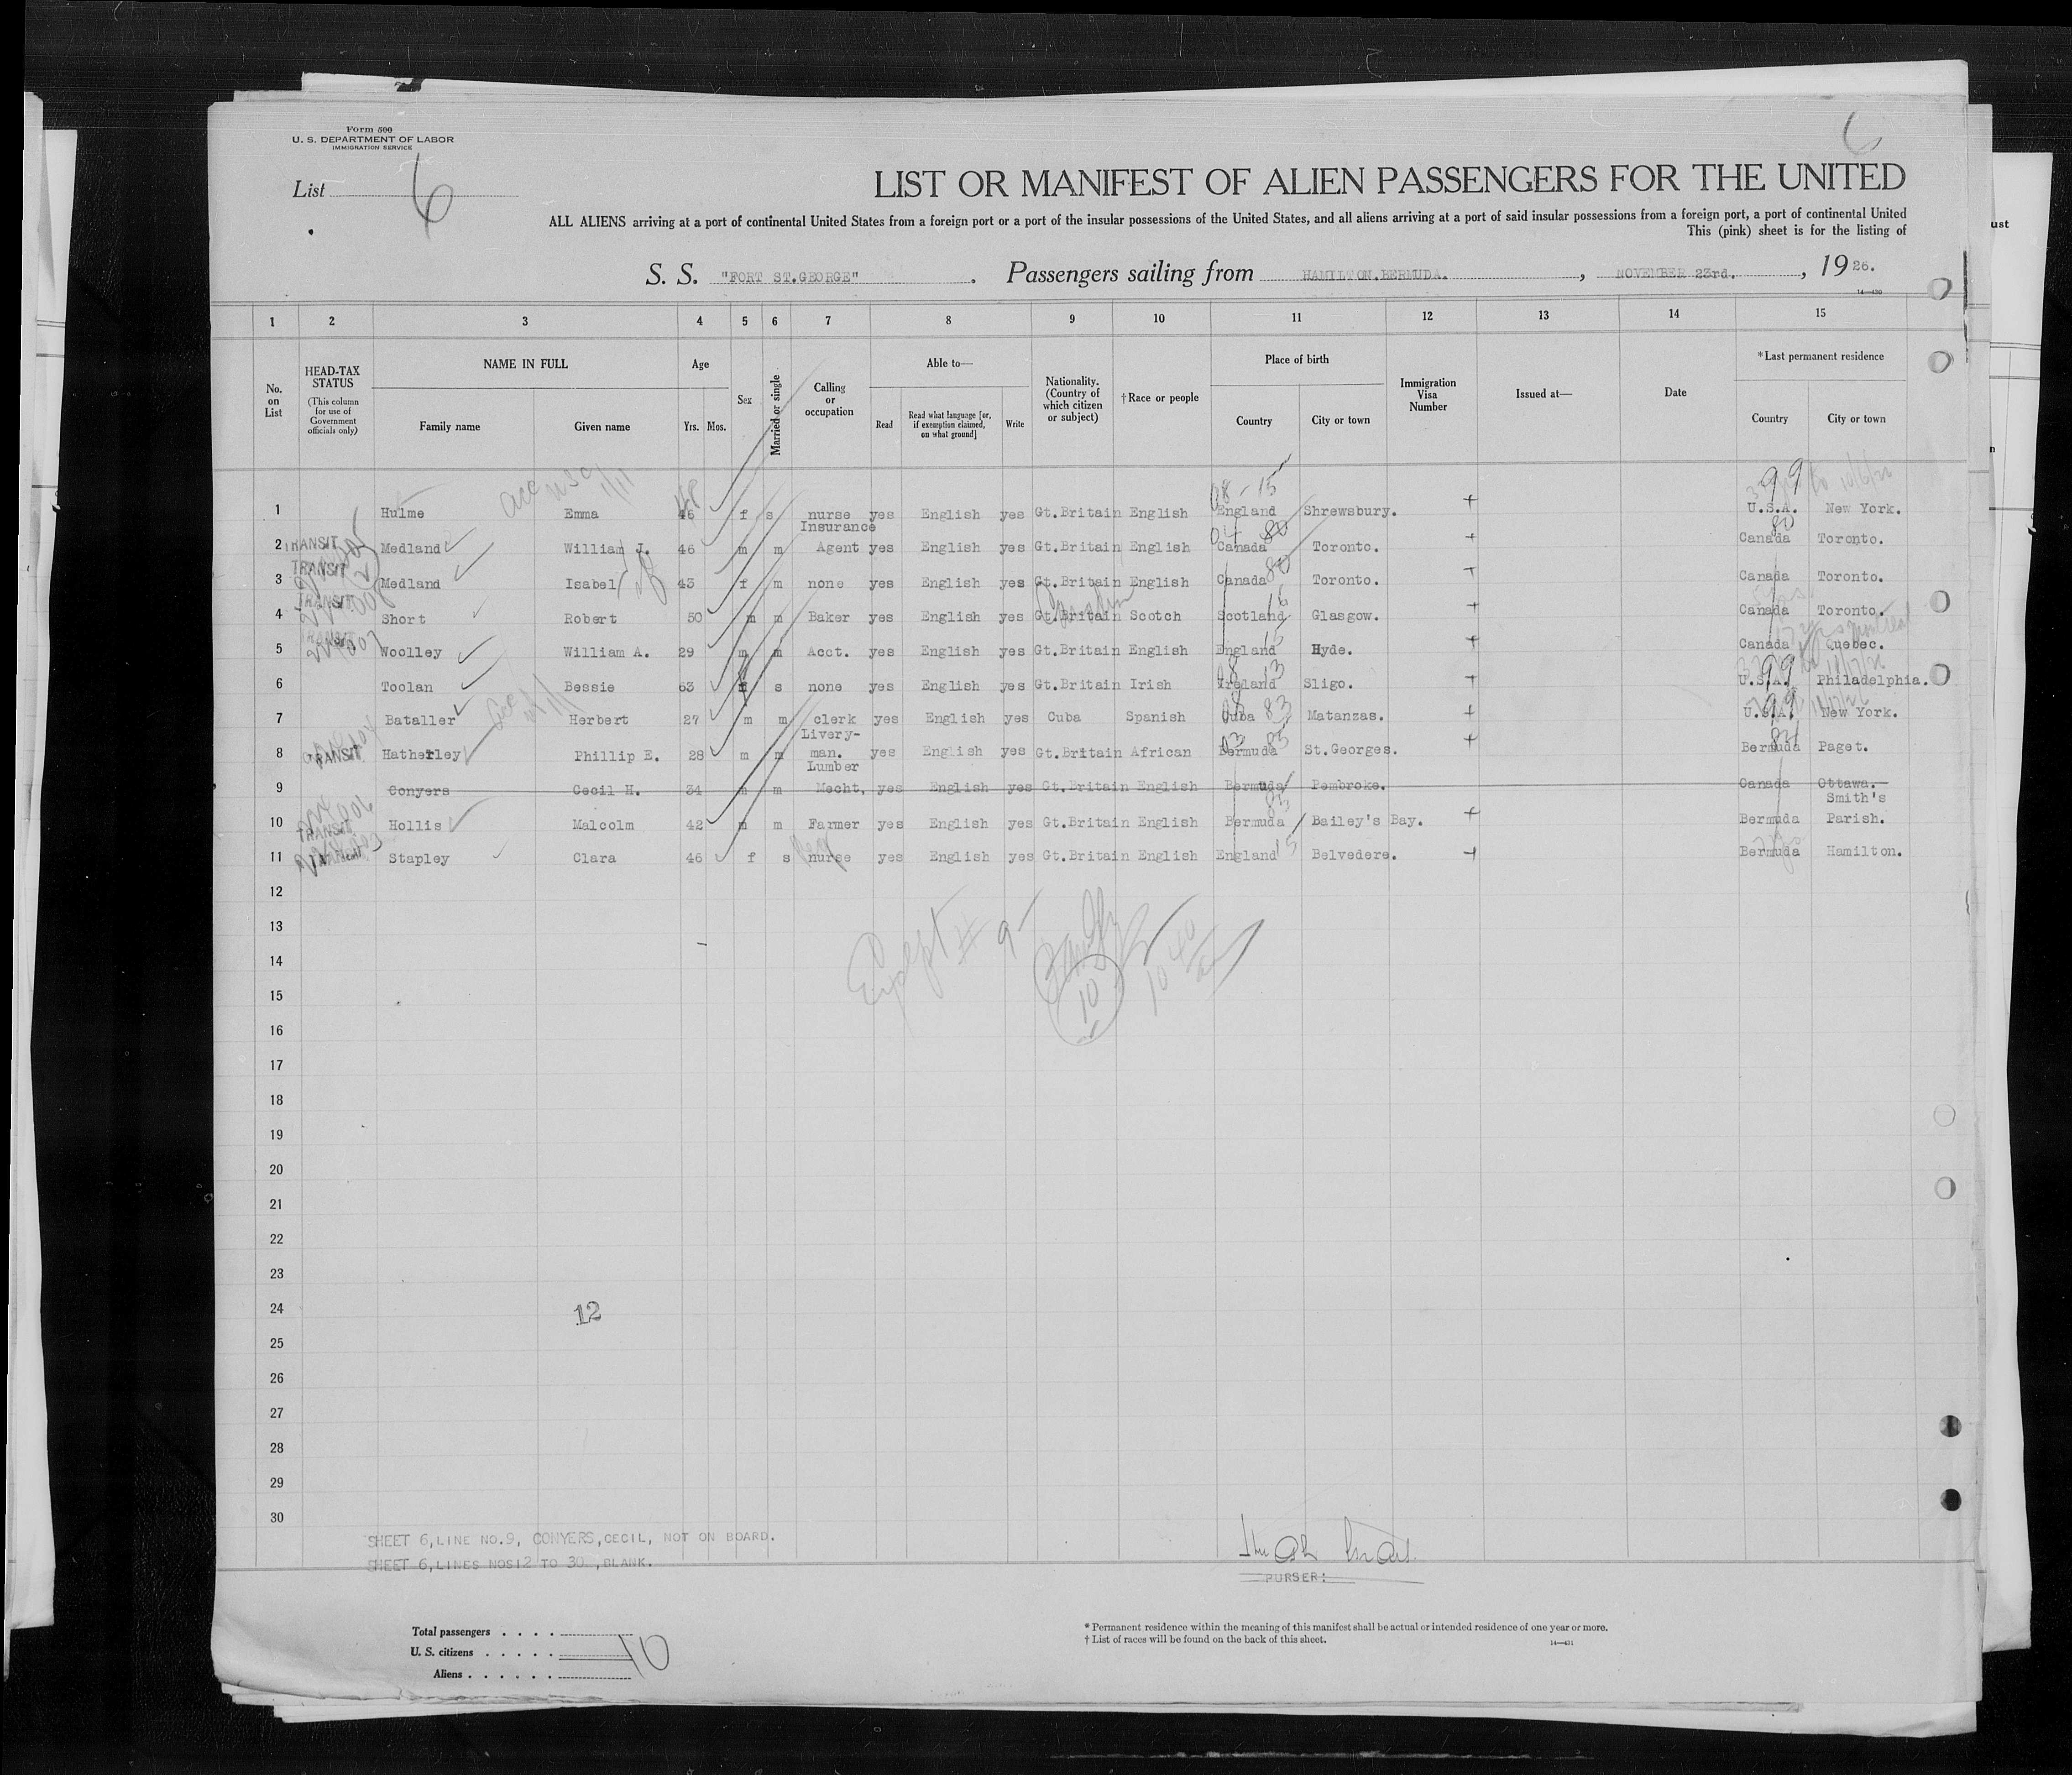 Form 500
U. S. DEPARTMENT OF LABOR
IMMIGRATION SERVICE
6
List 6
LIST OR MANIFEST OF ALIEN PASSENGERS FOR THE UNITED
ALL ALIENS arriving at a port of continental United States from a foreign port or a port of the insular possessions of the United States, and all aliens arriving at a port of said insular possessions from a foreign port, a port of continental United
This (pink) sheet is for the listing of
S. S. "FORT ST.GEORGE". Passengers sailing from HAMILTON.BERMUDA. , NOVEMBER 23rd. , 1926.
14—430
1 2 3 4 5 6 7 8 9 10 11 12 13 14 15
No. on List
HEAD-TAX STATUS
(This column for use of Government officials only)
NAME IN FULL
Family name Given name
Age
Yrs. Mos.
Sex
Married or single
Calling or occupation
Able to—
Read
Read what language [or, if exemption claimed, on what ground]
Write
Nationality. (Country of which citizen or subject)
†Race or people
Place of birth
Country City or town
Immigration Visa Number
Issued at—
Date
*Last permanent residence
Country City or town
1 Hulme Emma 46 f s nurse yes English yes Gt.Britain English England Shrewsbury. U.S.A. New York.
2 TRANSIT Medland William J. 46 m m Insurance Agent yes English yes Gt.Britain English Canada Toronto. Canada Toronto.
3 TRANSIT Medland Isabel 43 f m none yes English yes Gt.Britain English Canada Toronto. Canada Toronto.
4 TRANSIT Short Robert 50 m m Baker yes English yes Gt.Britain Scotch Scotland Glasgow. Canada Toronto.
5 TRANSIT Woolley William A. 29 m m Acct. yes English yes Gt.Britain English England Hyde. Canada Quebec.
6 Toolan Bessie 63 f s none yes English yes Gt.Britain Irish Ireland Sligo. U.S.A. Philadelphia.
7 Bataller Herbert 27 m m clerk yes English yes Cuba Spanish Cuba Matanzas. U.S.A. New York.
8 TRANSIT Hatherley Phillip E. 28 m m Livery-man. yes English yes Gt.Britain African Bermuda St.Georges. Bermuda Paget.
9 Conyers Cecil H. 34 m m Lumber Mecht, yes English yes Gt.Britain English Bermuda Pembroke. Canada Ottawa.
10 TRANSIT Hollis Malcolm 42 m m Farmer yes English yes Gt.Britain English Bermuda Bailey's Bay. Bermuda Smith's Parish.
11 TRANSIT Stapley Clara 46 f s nurse yes English yes Gt.Britain English England Belvedere. Bermuda Hamilton.
12
13
Except # 9
14
10
10 40
15
16
17
18
19
20
21
22
23
24 12
25
26
27
28
29
30
SHEET 6,LINE NO.9, CONYERS,CECIL, NOT ON BOARD.
SHEET 6,LINES NOS12 TO 30 ,BLANK.
PURSER:
Total passengers . . . .
U. S. citizens . . . . . 10
Aliens . . . . . .
* Permanent residence within the meaning of this manifest shall be actual or intended residence of one year or more.
† List of races will be found on the back of this sheet.
14—431